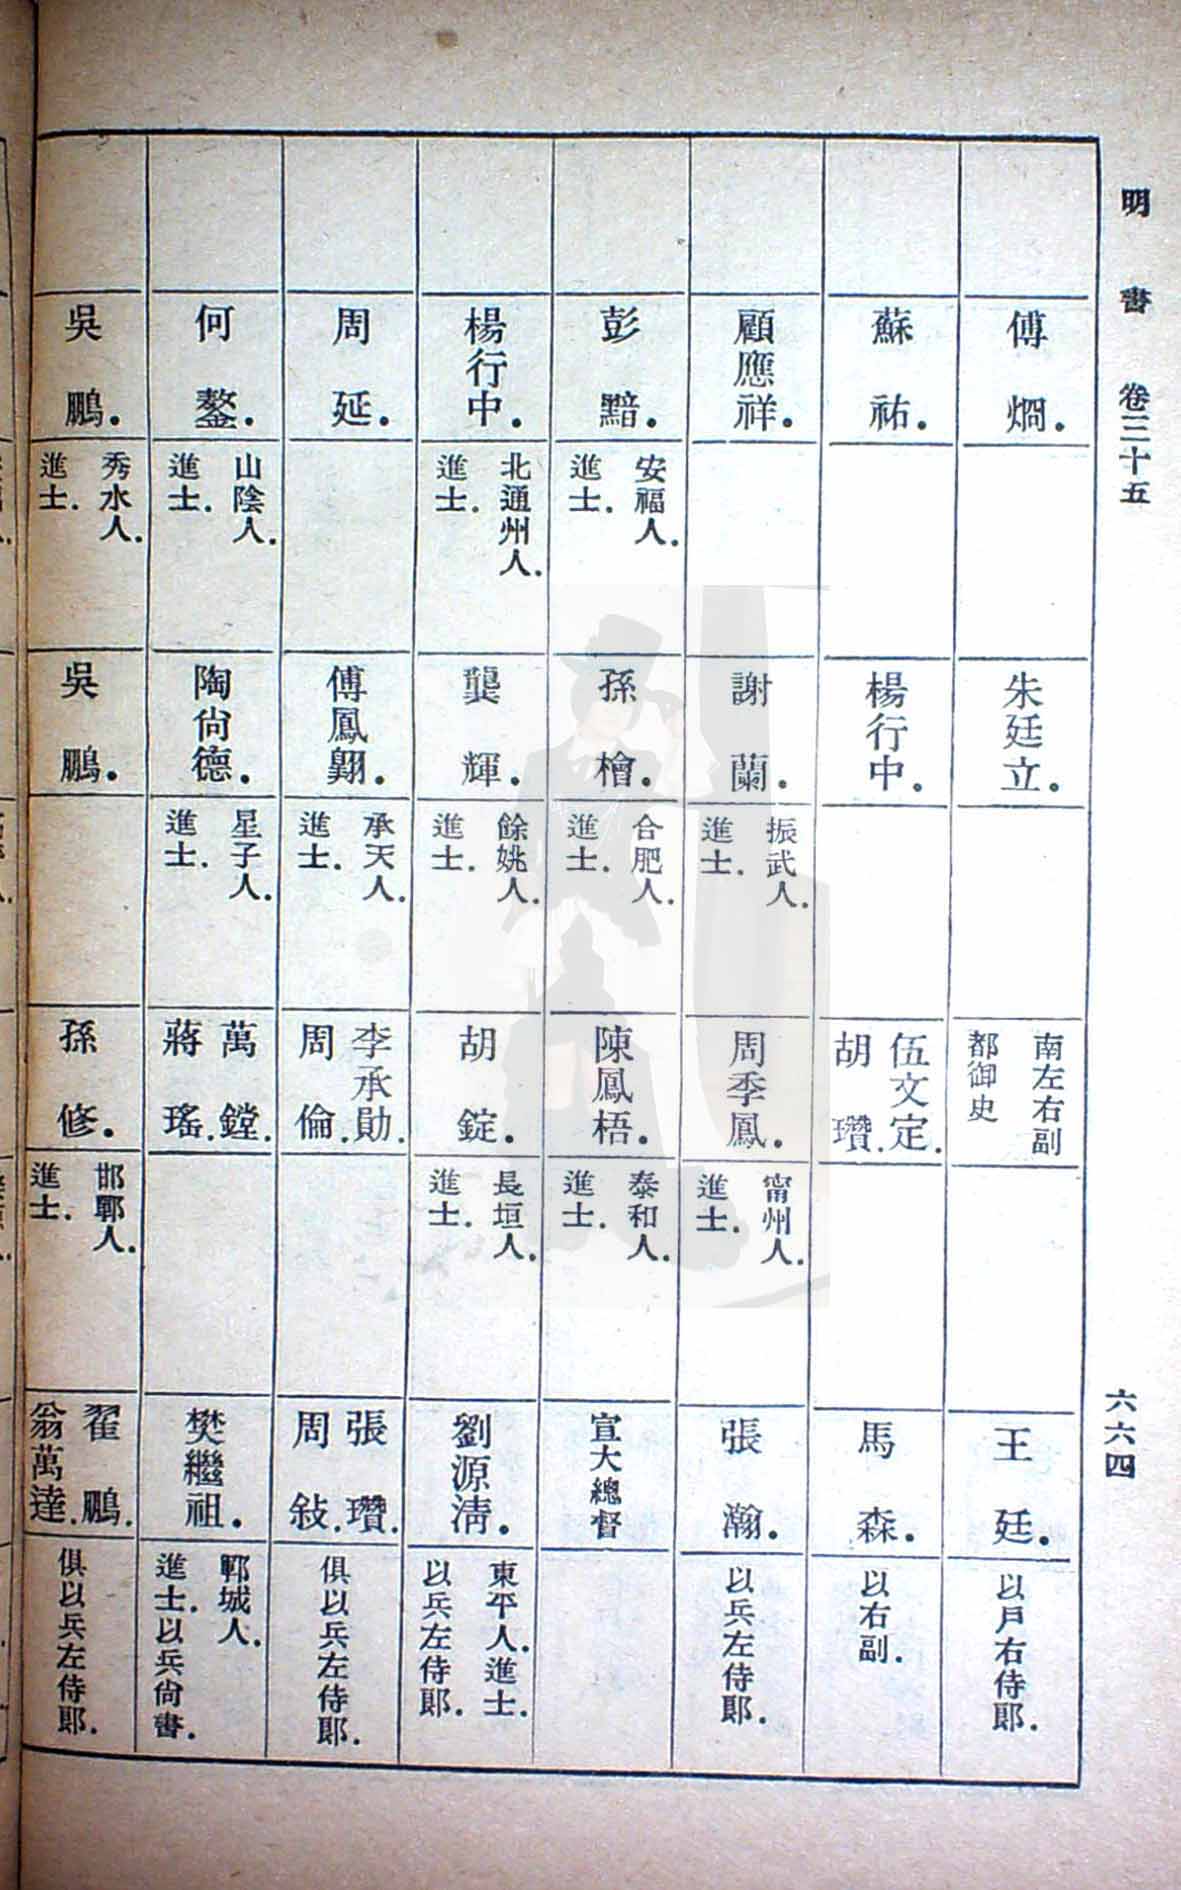 明書 卷三十五
六六四
傅烱．
朱廷立．
南左右副
都御史
王廷．
以戶右侍郎．
蘇祐．
楊行中．
伍文定．
胡瓚．
馬森．
以右副．
顧應祥．
謝蘭．
振武人．
進士．
周季鳳．
甯州人．
進士．
張瀚．
以兵左侍郎．
彭黯．
安福人．
進士．
孫檜．
合肥人．
進士．
陳鳳梧．
泰和人．
進士．
宣大總督
楊行中．
北通州人．
進士．
龔輝．
餘姚人．
進士．
胡錠．
長垣人．
進士．
劉源清．
東平人．進士．
以兵左侍郎．
周延．
傅鳳翺．
承天人．
進士．
李承勛．
周倫．
張瓚．
周敍．
俱以兵左侍郎．
何鰲．
山陰人．
進士．
陶尙德．
星子人．
進士．
萬鏜．
蔣瑤．
樊繼祖．
鄆城人．
進士．以兵尙書．
吳鵬．
秀水人．
進士．
吳鵬．
孫修．
邯鄲人．
進士．
翟鵬．
翁萬達．
俱以兵左侍郎．